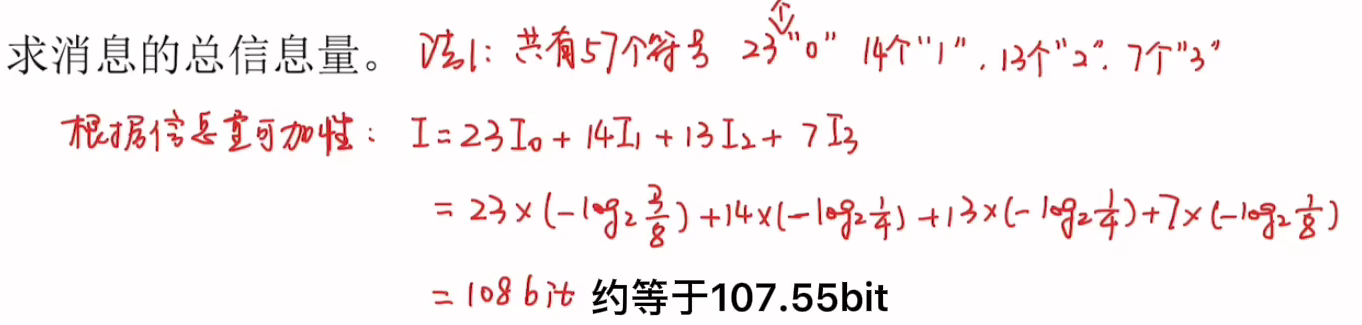 求消息的总信息量。 法1: 共有57个符号 23个"0" 14个"1", 13个"2". 7个"3"
根据信息量可加性: I=23I₀+14I₁+13I₂+7I₃
=23×(-log₂3/8)+14×(-log₂1/4)+13×(-log₂1/4)+7×(-log₂1/8)
=108bit 约等于107.55bit